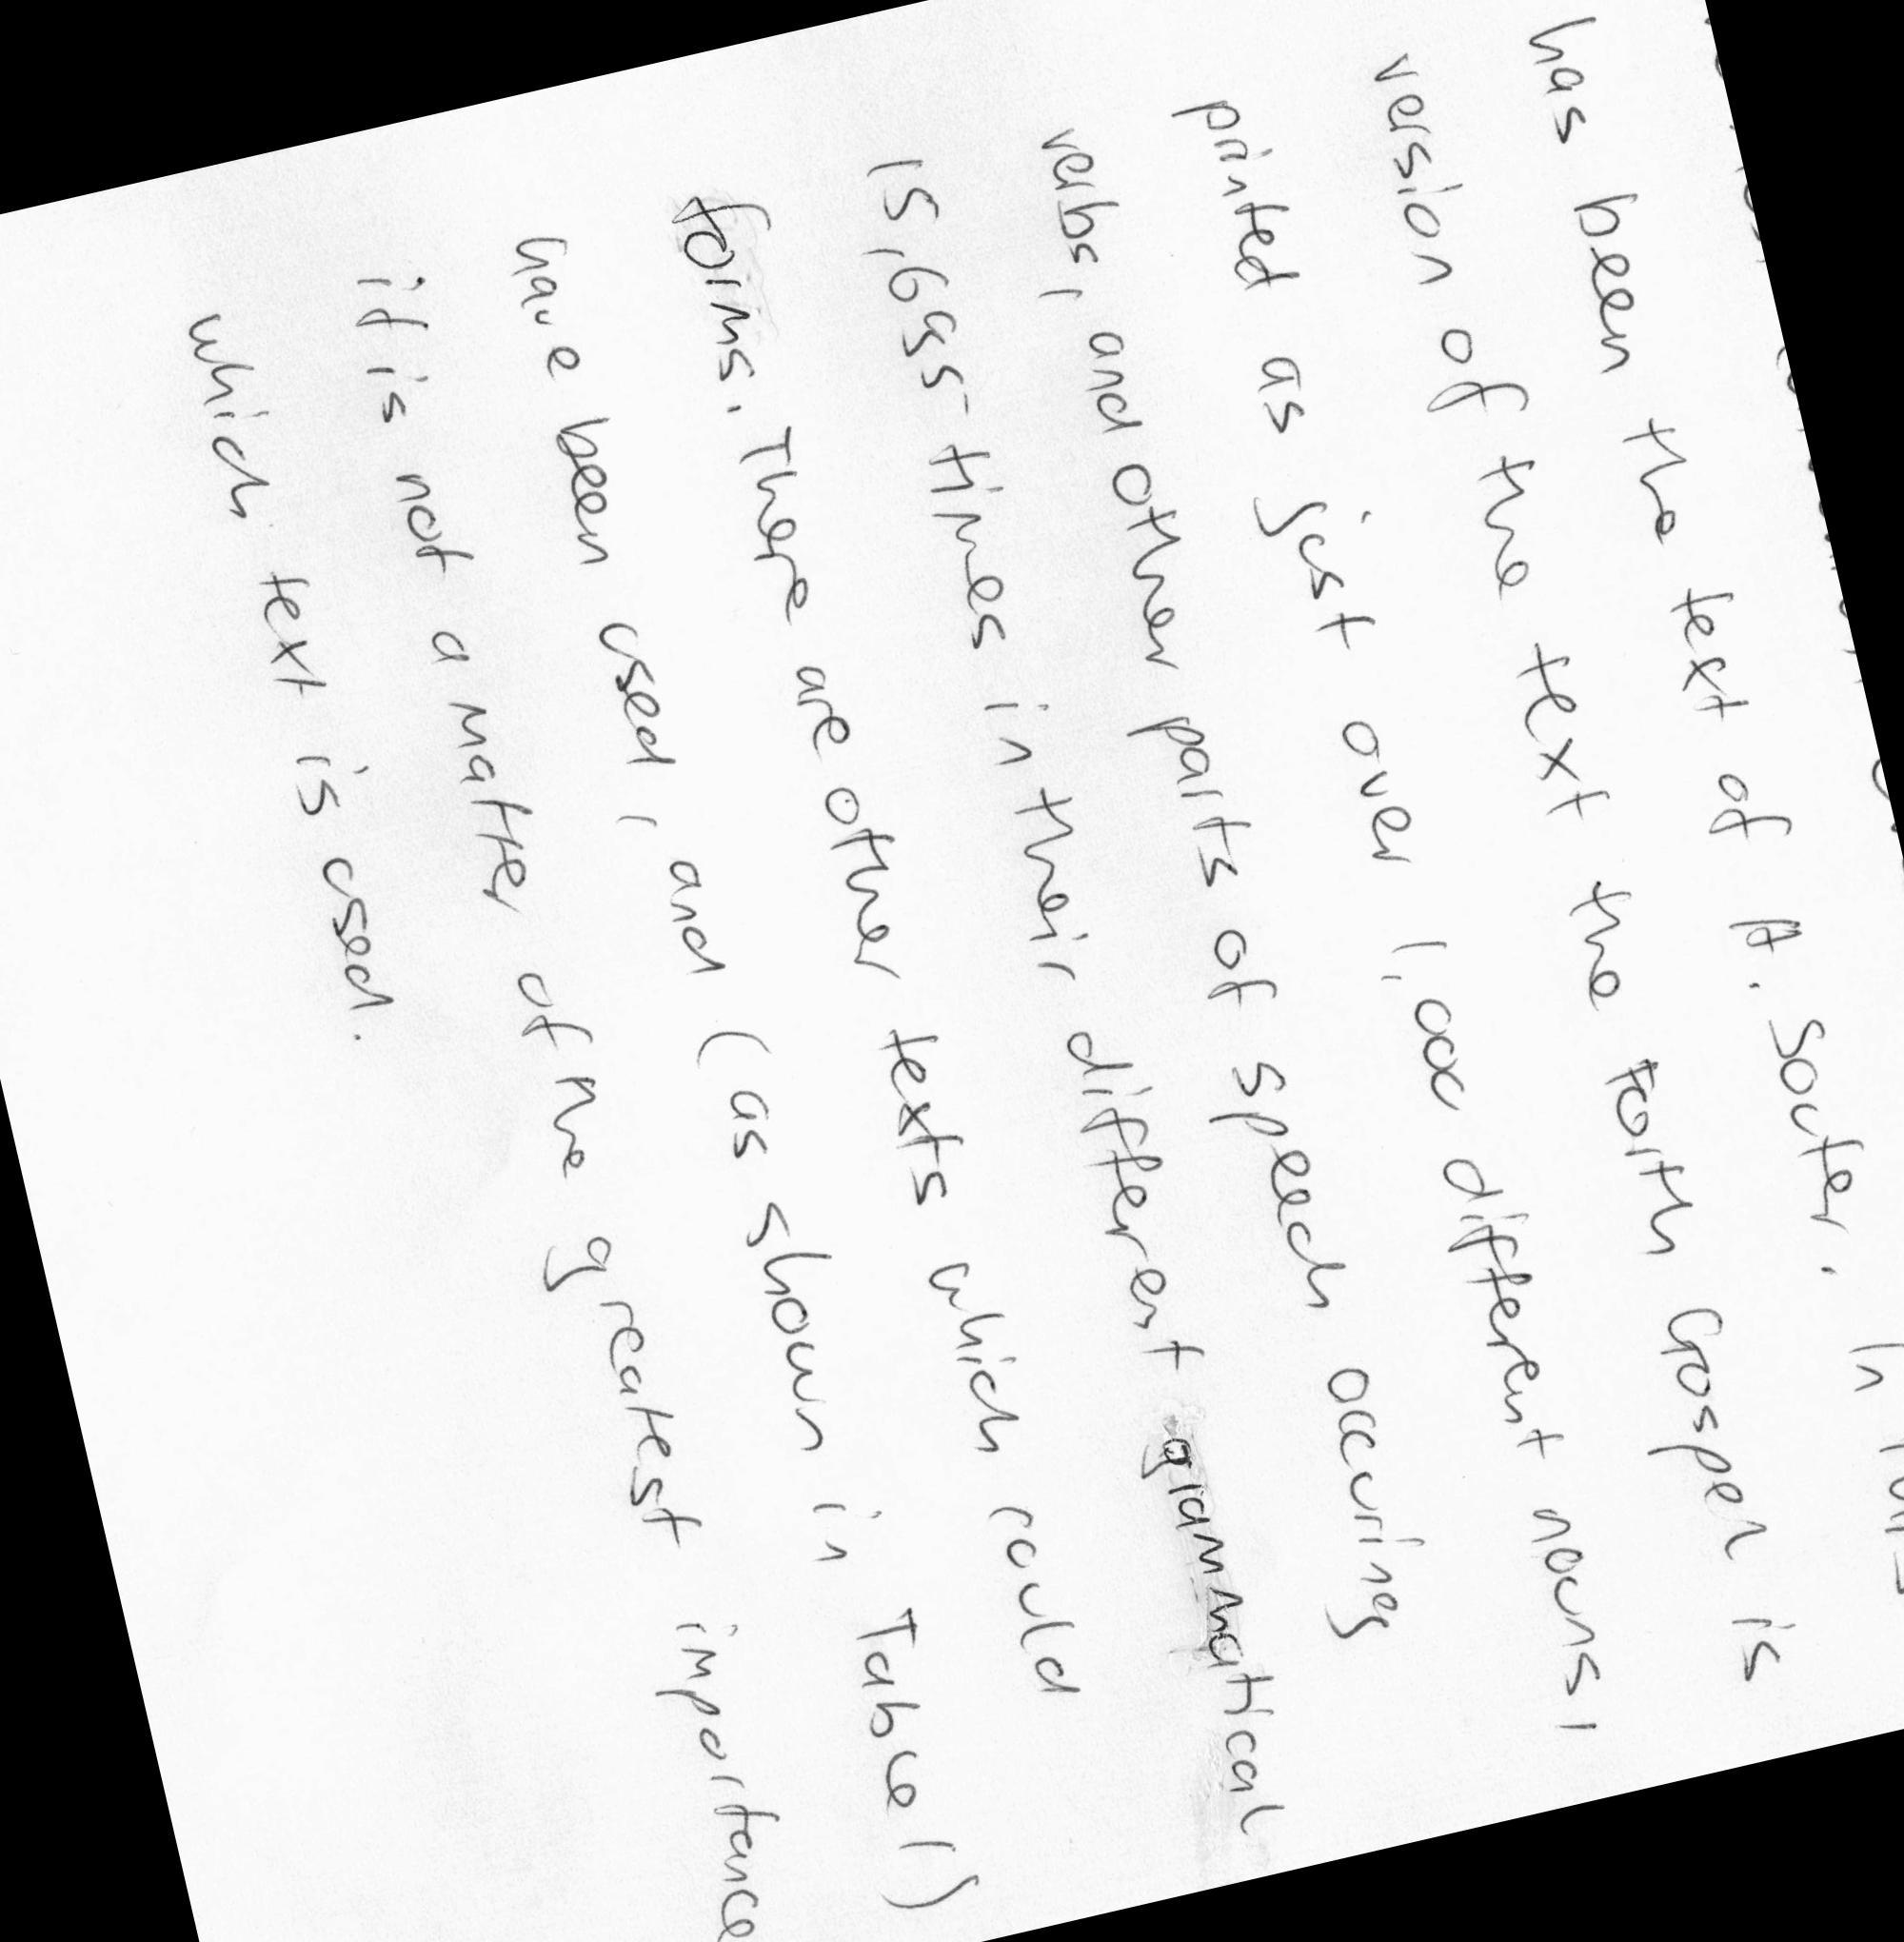 has been the text of A. Souter. In this
version of the text the Forth Gospel is
printed as just over 1,000 different nouns,
verbs, and other parts of speech occuring
15,695 times in their different grammatical
forms. There are other texts which could
have been used, and (as shown in Table 1)
if is not a matter of the greatest importance
which text is used.